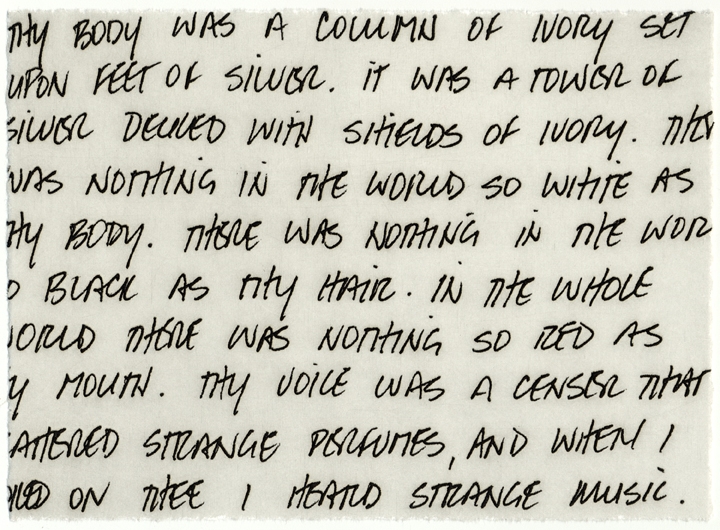 THY BODY WAS A COLUMN OF IVORY SET
UPON FEET OF SILVER. IT WAS A TOWER OF
SILVER DECKED WITH SHIELDS OF IVORY. THER
WAS NOTHING IN THE WORLD SO WHITE AS
THY BODY. THERE WAS NOTHING IN THE WORL
O BLACK AS THY HAIR. IN THE WHOLE
WORLD THERE WAS NOTHING SO RED AS
Y MOUTH. THY VOICE WAS A CENSER THAT
CATTERED STRANGE PERFUMES, AND WHEN I
ON THEE I HEARD STRANGE MUSIC.